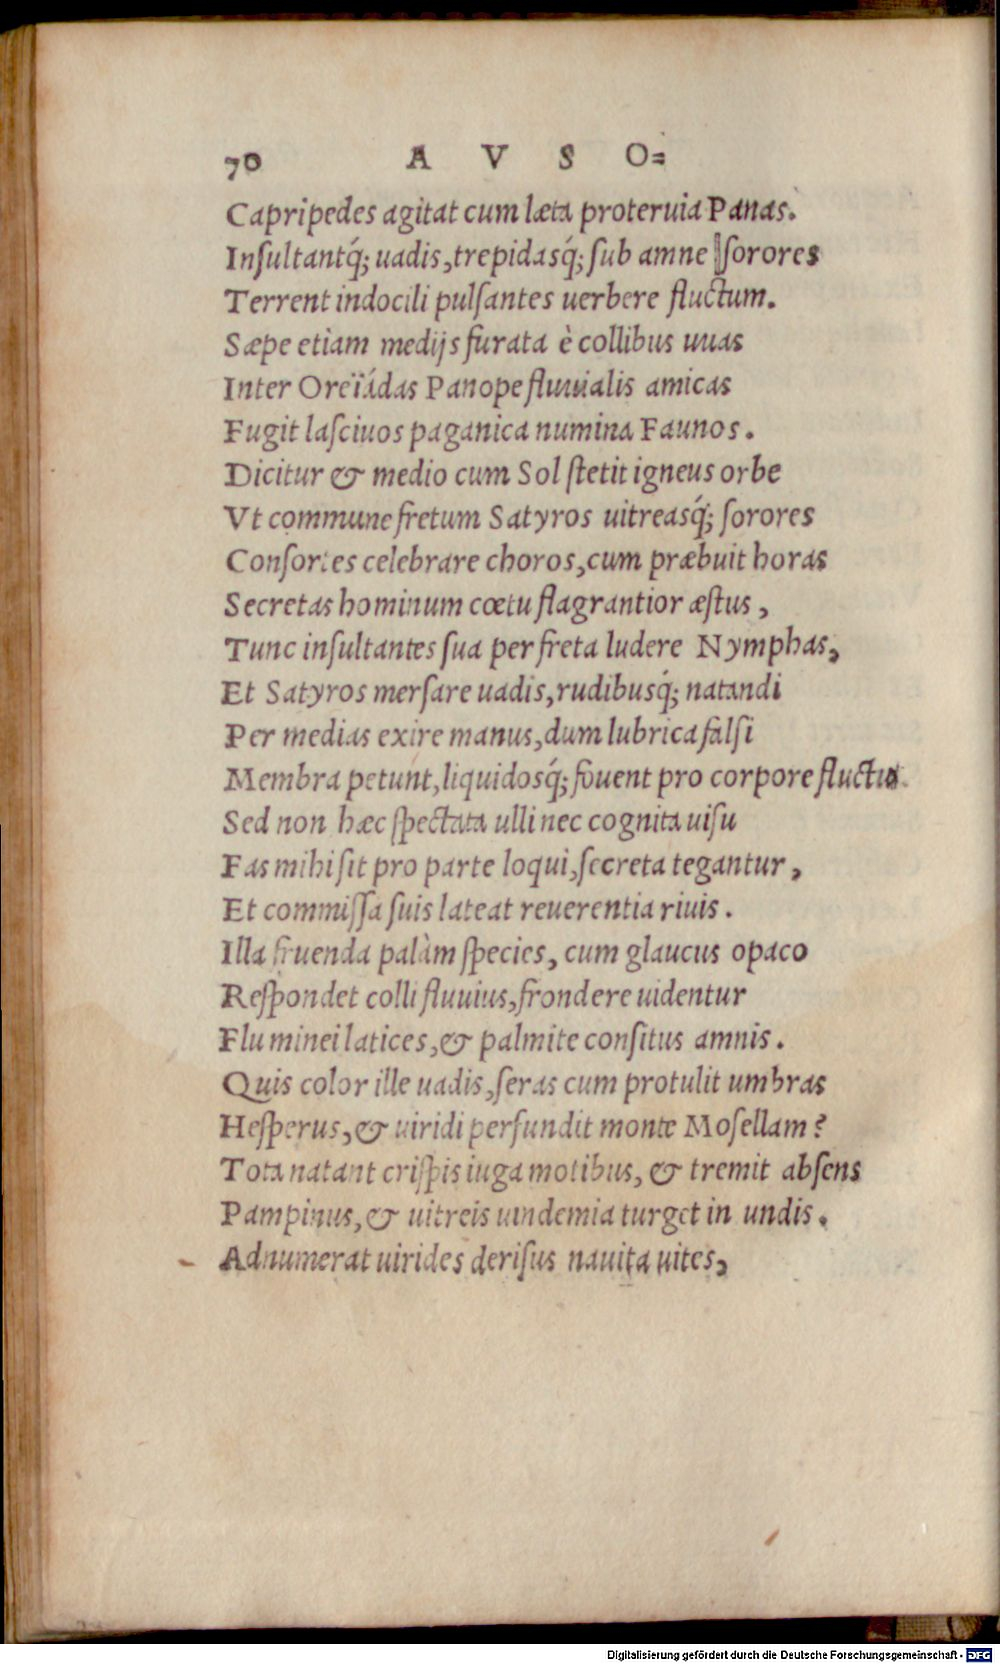 70 A V S O=
Capripedes agitat cum læta proteruia Panas.
Inſultantq́; uadis, trepidasq́; ſub amne ſorores
Terrent indocili pulſantes uerbere fluctum.
Sæpe etiam medijs furata è collibus uuas
Inter Oreïádas Panope fluuialis amicas
Fugit laſciuos paganica numina Faunos.
Dicitur & medio cum Sol ſtetit igneus orbe
Vt commune fretum Satyros uitreasq́; ſorores
Conſortes celebrare choros, cum præbuit horas
Secretas hominum cœtu flagrantior æſtus,
Tunc inſultantes ſua per freta ludere Nymphas,
Et Satyros merſare uadis, rudibusq́; natandi
Per medias exire manus, dum lubrica falſi
Membra petunt, liquidosq́; fouent pro corpore fluctus.
Sed non hæc ſpectata ulli nec cognita uiſu
Fas mihi ſit pro parte loqui, ſecreta tegantur,
Et commiſſa ſuis lateat reuerentia riuis.
Illa fruenda palàm ſpecies, cum glaucus opaco
Reſpondet colli fluuius, frondere uidentur
Fluminei latices, & palmite conſitus amnis.
Quis color ille uadis, ſeras cum protulit umbras
Heſperus, & uiridi perfundit monte Moſellam?
Tota natant criſpis iuga motibus, & tremit abſens
Pampinus, & uitreis uindemia turget in undis.
Adnumerat uirides deriſus nauita uites,
Digitalisierung gefördert durch die Deutsche Forschungsgemeinschaft - DFG